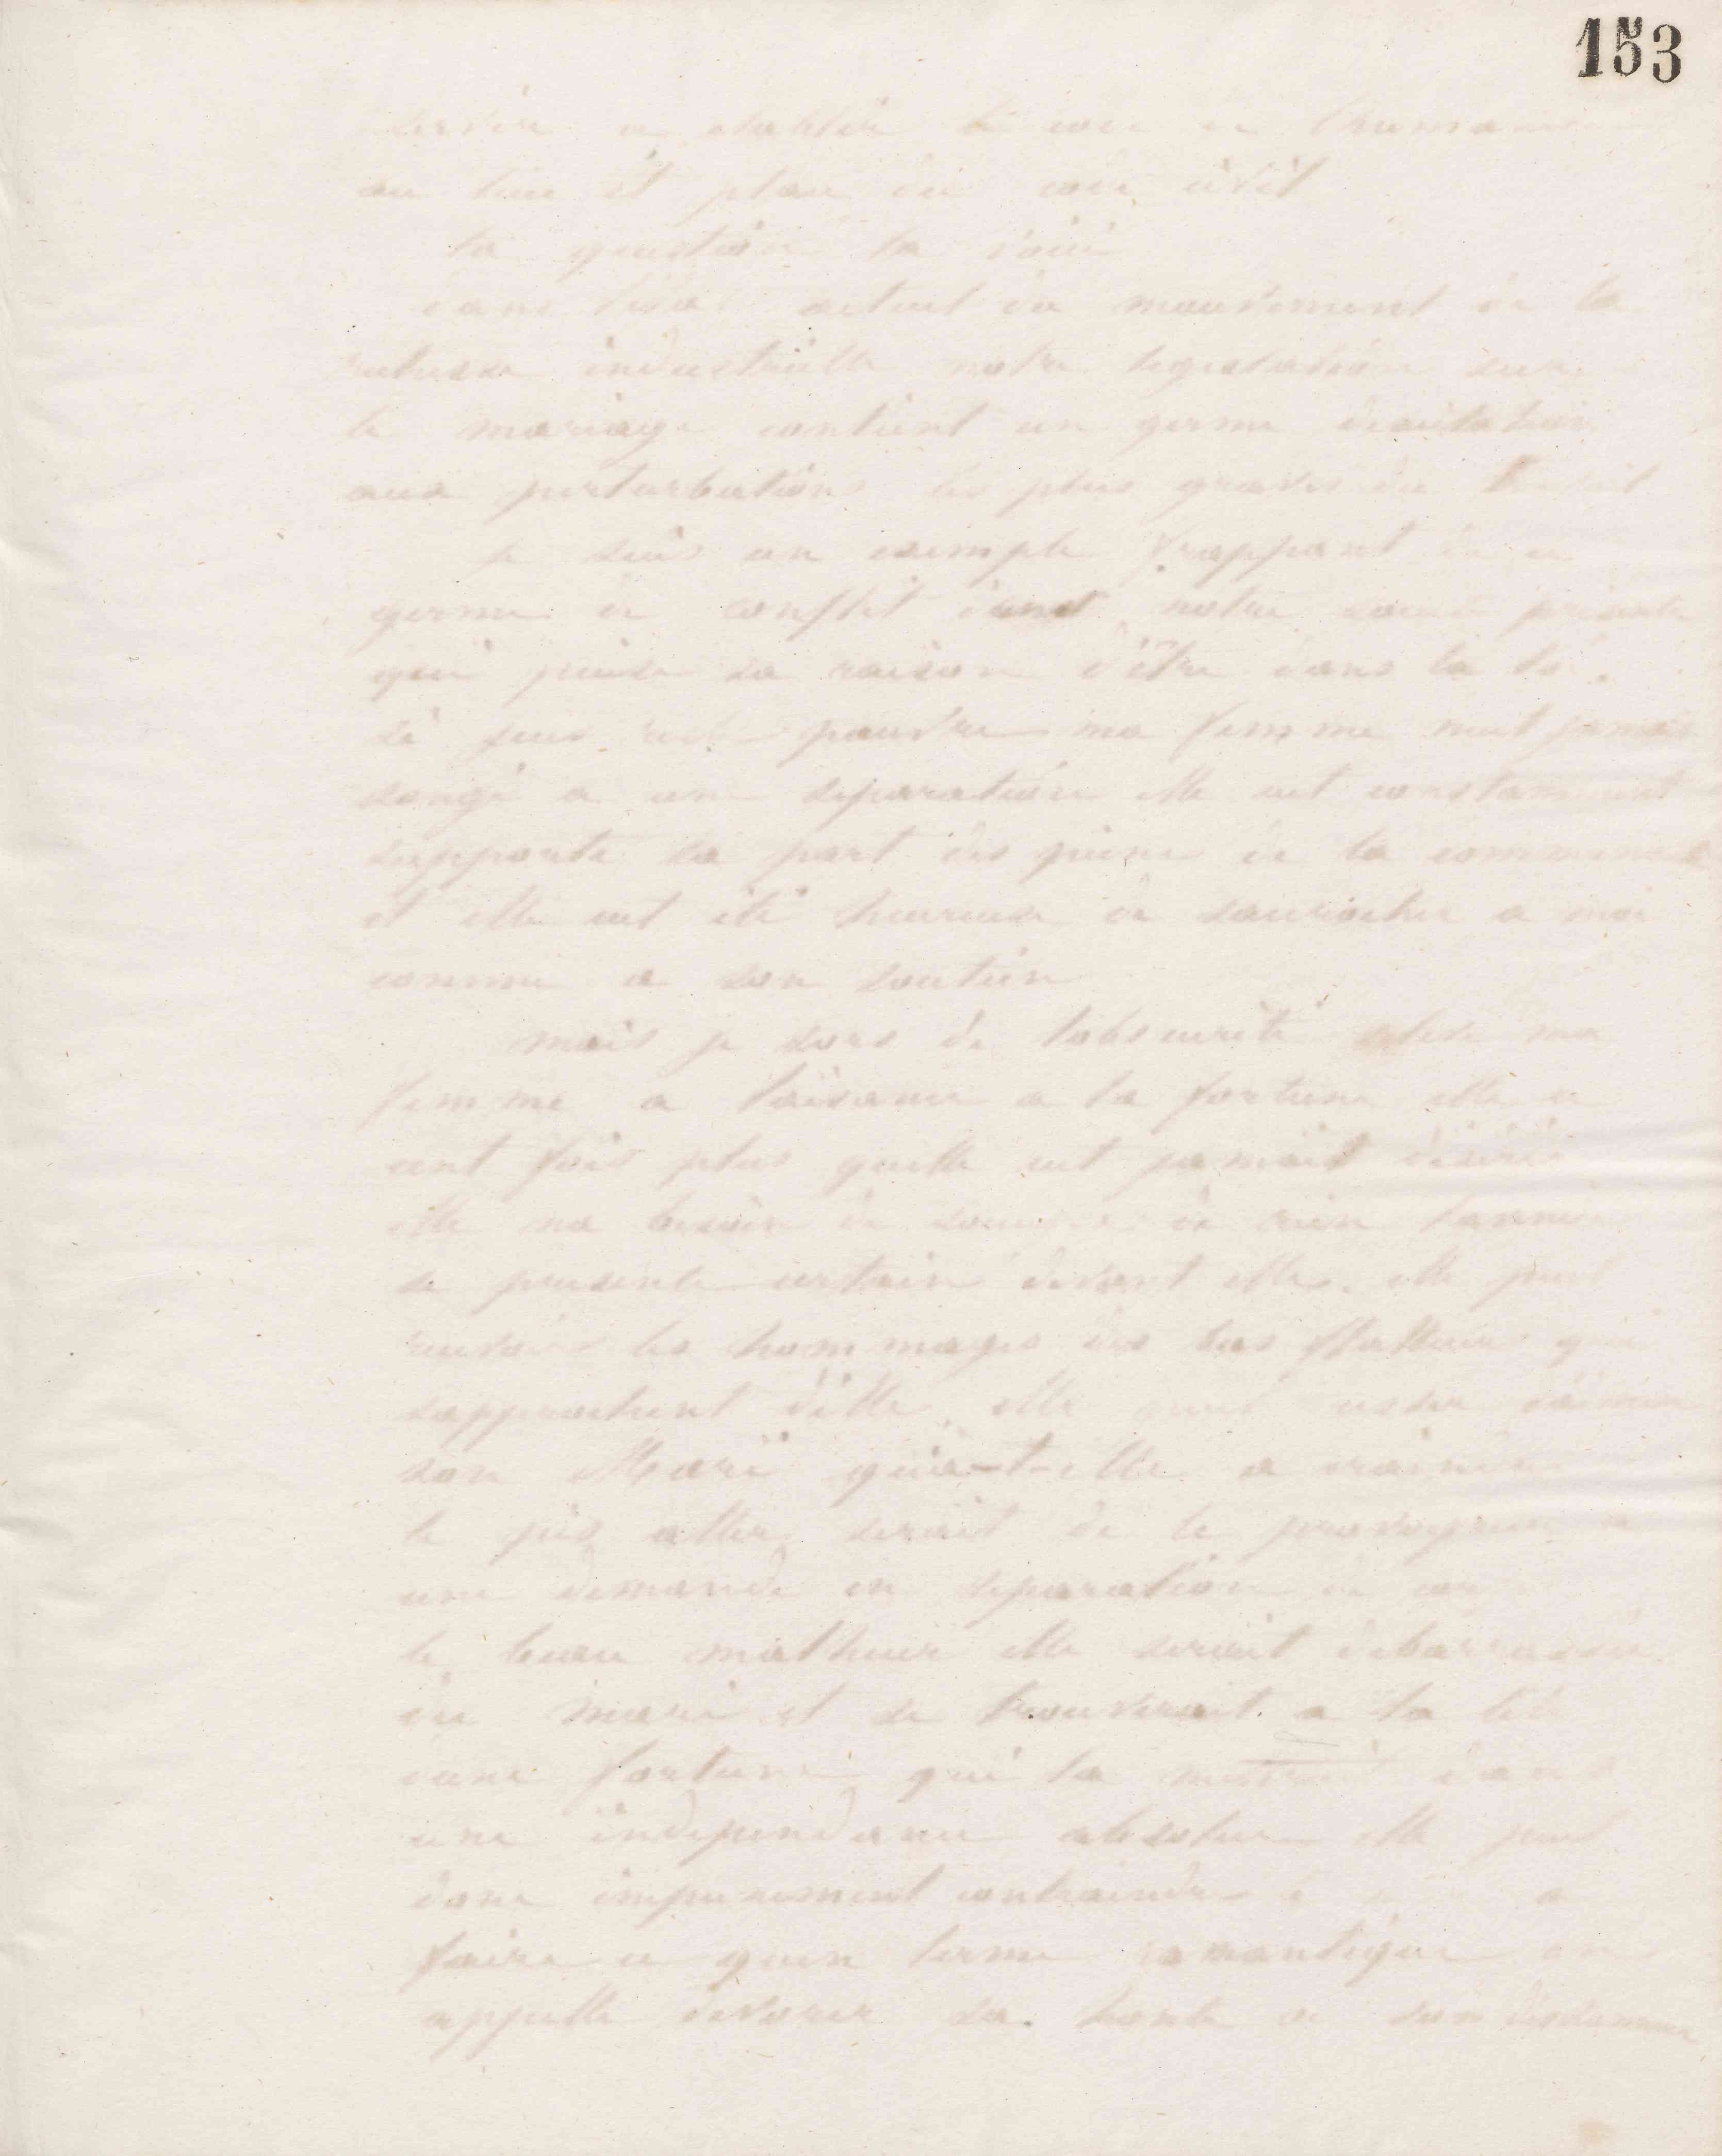 153
servir a etablir le code de l'humanité
au lieu et place du code civil
la question la voici
dans l'etat actuel du mouvement de la
richesse industrielle notre legislation sur
le mariage contient un germe dexcitation
aux perturbations les plus graves du
je suis un exemple frappant de ce
germe de conflit dans notre société présente
qui puise sa raison d'être dans la loi.
si jeus resté pauvre ma femme neut jamais
songé a une separation elle eut constamment
supporté sa part des peines de la communauté
et elle eut été heureuse de saccrocher a moi
comme a son soutien
mais je sors de lobscurité jeleve ma
femme a laisance a la fortune elle a
cent fois plus quelle eut jamais désiré
elle na besoin de soucis de rien lavenir
se presente certain devant elle. elle peut
recevoir les hommages des bas flatteurs qui
sapprochent d'elle elle peut cesser daimer
son Mari qua-t-elle a craindre
le pis aller serait de le provoquer a
une demande en separation de corps
le beau malheur elle serait debarrassée
du mari et se trouverait a la tête
dune fortune qui la mettrait dans
une independance absolue elle peut
donc impunement contraindre le mari a
faire ce quen terme romantique on
appelle devorer sa honte et son deshonneur